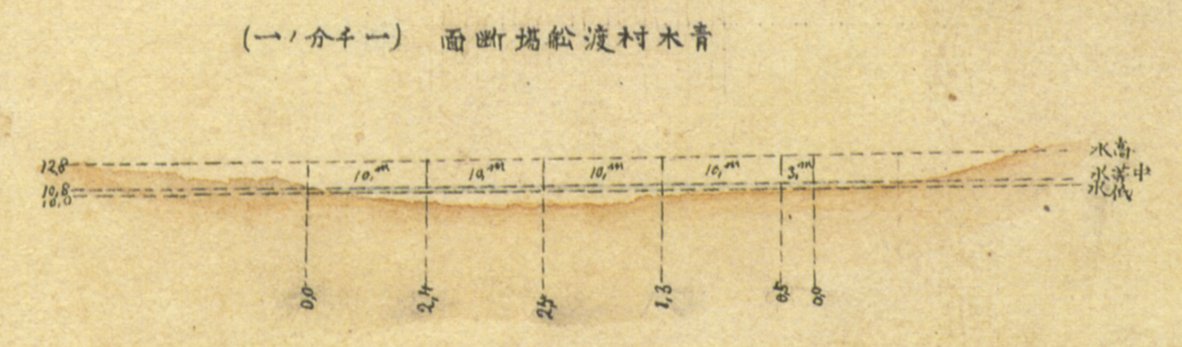 青木村渡舩場断面 (一千分ノ一)
12,8
10,8
10,0
10,m 10,m 10,m 10,m 3,m
高水
中等水
低水
0,0 2,4 2,5 1,3 0,5 0,0